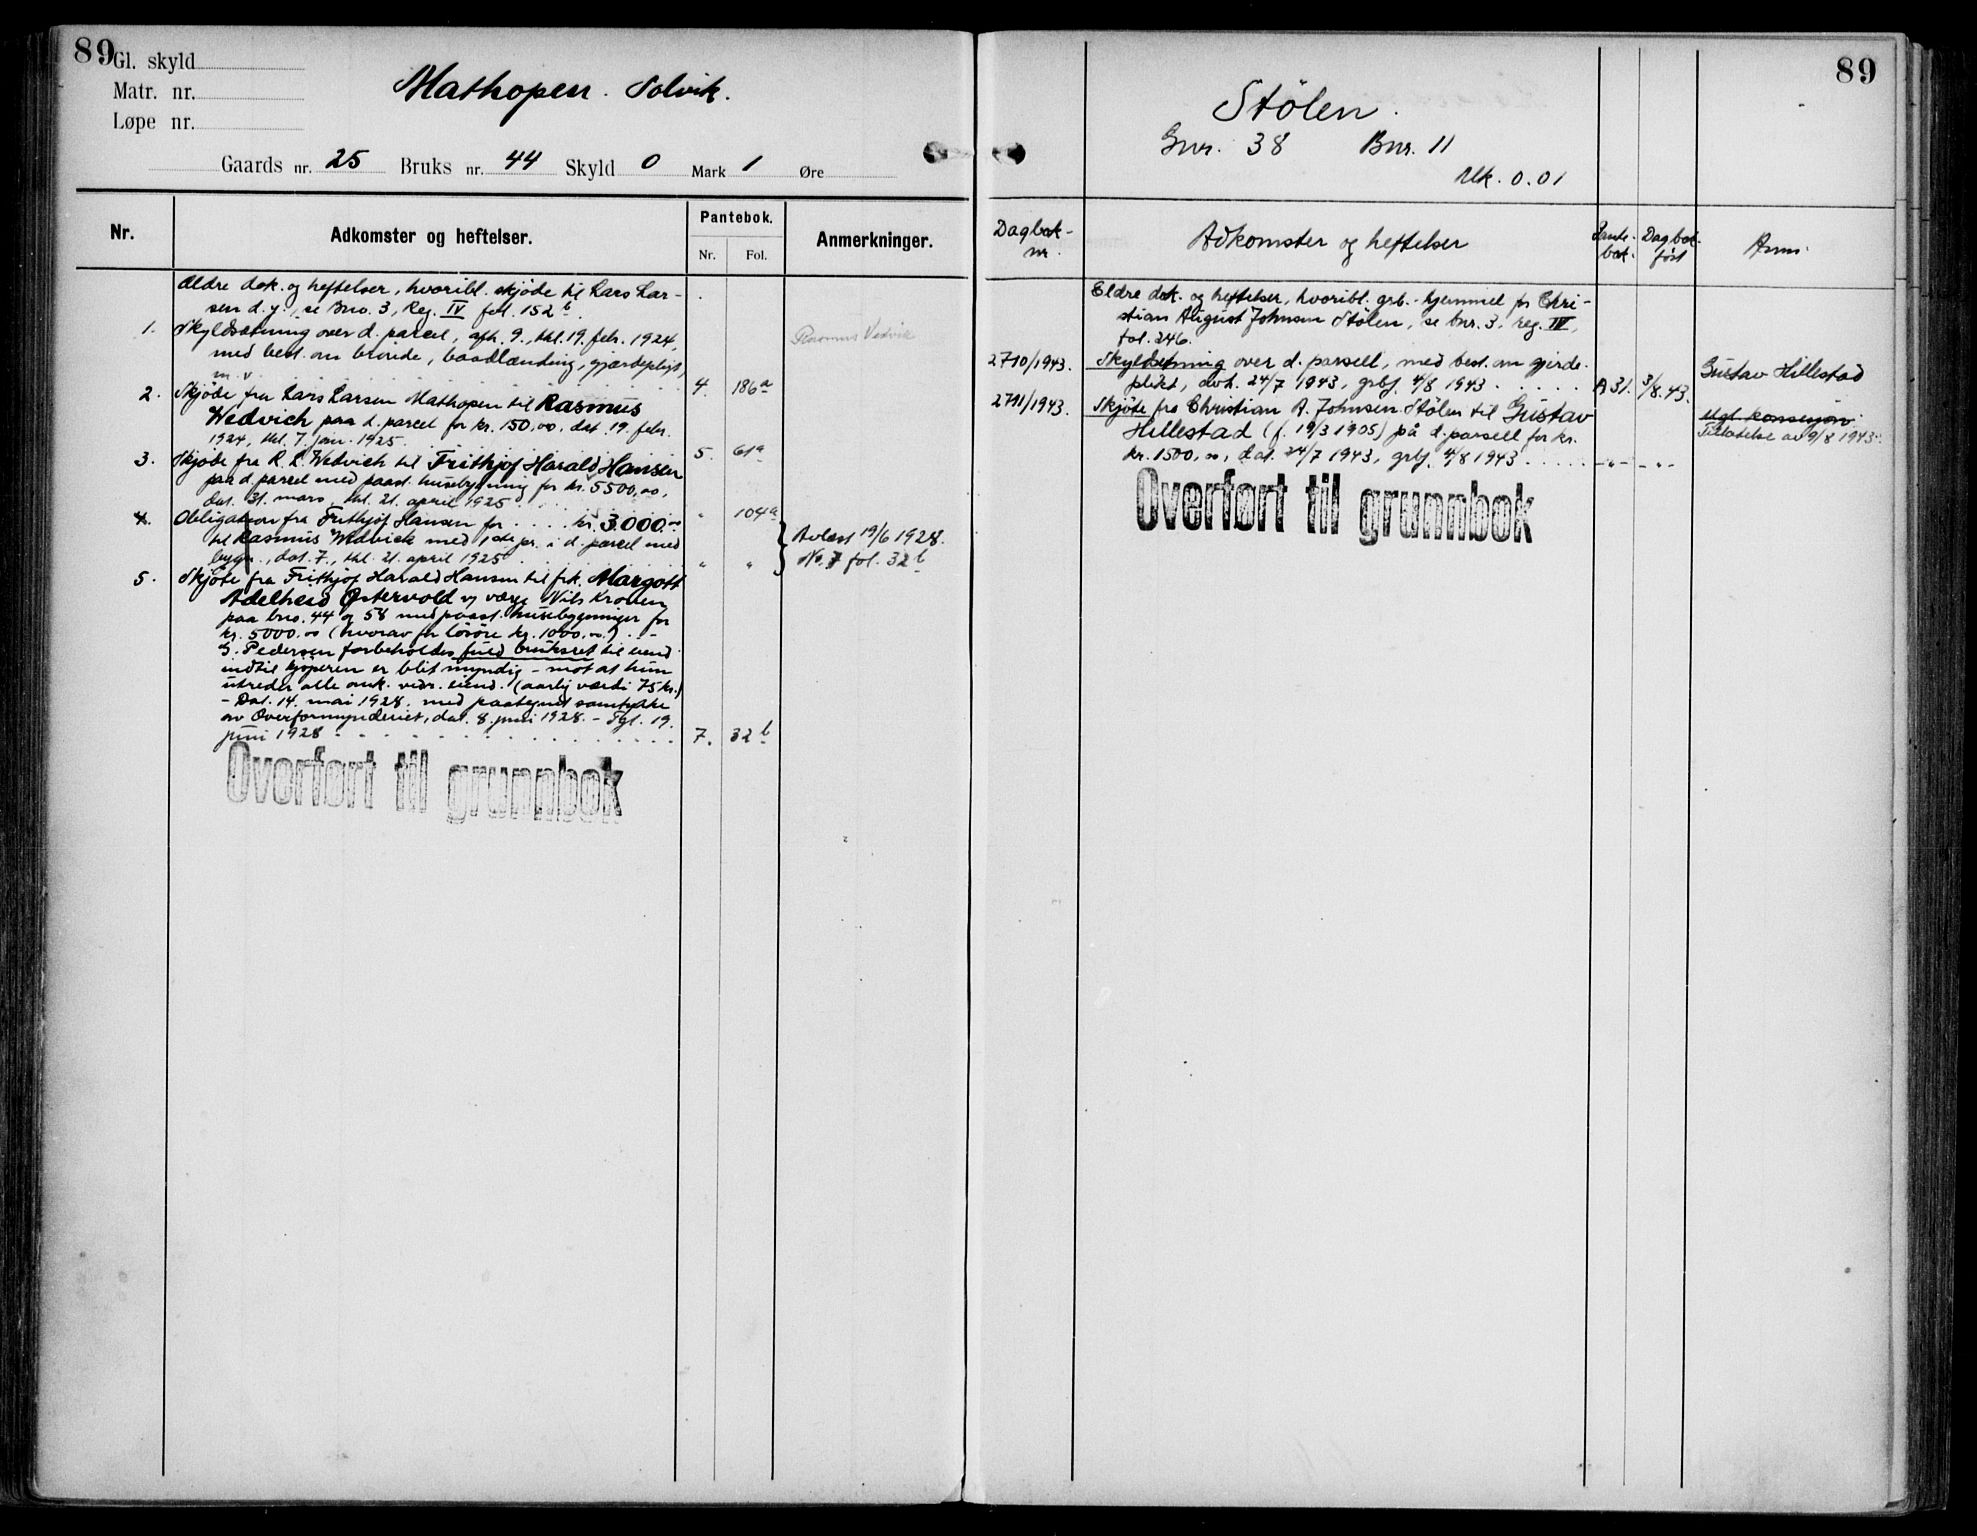 89
Gl. skyld
Matr. nr.
Løpe nr.
Mathopen. Solvik.
Gaards nr. 25 Bruks nr. 44 Skyld 0 Mark 1 Øre
Nr.
Adkomster og heftelser.
Pantebok.
Nr. Fol.
Anmerkninger.
Ældre dok. og heftelser, hvoribl. skjøde til Lars Lar-
sen d. y., se Bno. 3, Reg. IV fol. 152 b.
1. Skyldsætning over d. parcel, afh. 9., thl. 19. febr. 1924,
med best. om brønde, baadlænding, gjærdepligt,
m. v. 4. 186 a
Rasmus Vedvik
2. Skjøde fra Lars Larsen Mathopen til Rasmus
Wedvich paa d. parcel for kr. 150,00, dat. 19. febr.
1924, thl. 7. jan. 1925 5. 61 a
3. Skjøde fra R. L. Wedvich til Frithjof Harald Hansen
paa d. parcel med paast. husebygning for kr. 5500,00,
dat. 31. mars, thl. 21. april 1925 " 104 a
4. Obligation fra Frithjof Hansen for kr. 3000.00
til Rasmus Wedvick med 1ste pr. i d. parcel med
bygn., dat. 7., thl. 21. april 1925 " "
Avlæst 19/6 1928.
No. 7 fol. 32 b
5. Skjøte fra Frithjof Harald Hansen til frk. Margott
Adelheid Østervold v/ værge Nils Kroken
paa bno. 44 og 58 med paast. husebygninger for
kr. 5000.00 (hvorav for løsøre kr. 1000.00). -
G. Pedersen forbeholdes fuld bruksret til eiend.
indtil kjøperen er blit myndig - mot at hun
utreder alle omk. vedr. eiend. (aarlig værdi 75 kr.)
- Dat. 14. mai 1928, med paategnet samtykke
av Overformynderiet, dat. 8. juni 1928. - Tgl. 19.
juni 1928 7. 32 b
Overført til grunnbok
89
Stölen.
Gnr. 38 Bnr. 11
Mk. 0.01
Dagbok-
nr.
Adkomster og heftelser
Pante-
bok.
Dagbok-
ført
Anm.
Eldre dok. og heftelser, hvoribl. grb.-hjemmel for Chri-
stian August Johnsen Stölen, se bnr. 3, reg. IV,
fol. 246.
2710/1943. Skyldsetning over d. parsell, med best. om gjerde-
plikt, avh. 24/7 1943, grbf. 4/8 1943 A 31. 3/8.43.
Gustav Hillestad
2711/1943. Skjøte fra Christian A. Johnsen Stölen til Gustav
Hillestad (f. 19/3 1905) på d. parsell for kr.
kr. 1500,00, dat. 24/7 1943, grbf. 4/8 1943 -"- -"-
Mgl. konsesjon.
Tillatelse av 9/8 1943.
Overført til grunnbok